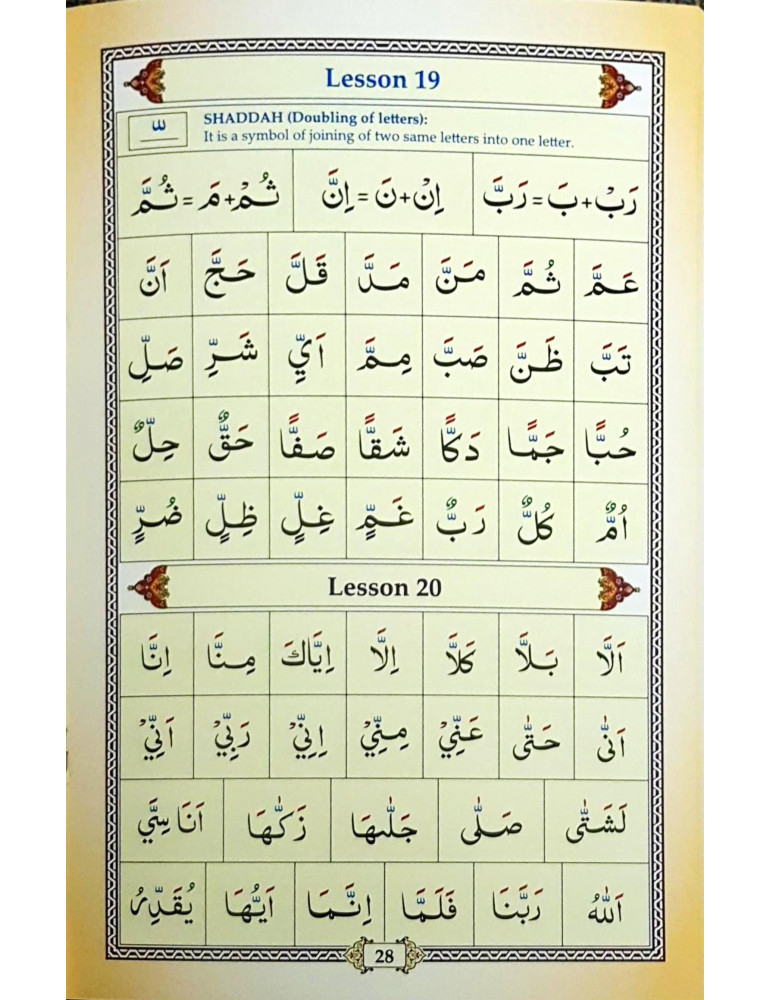 Lesson 19
ـّ
SHADDAH (Doubling of letters):
It is a symbol of joining of two same letters into one letter.
رَبْ+بَ=رَبَّ اِنْ+نَ=اِنَّ ثُمْ+مَ=ثُمَّ
عَمَّ ثُمَّ مَنَّ مَدَّ قَلَّ حَجَّ اَنَّ
تَبَّ ظَنَّ صَبَّ مِمَّ اَيِّ شَرِّ صَلِّ
حُبًّا جَمًّا دَكًّا شَقًّا صَفًّا حَقٌّ حِلٌّ
اُمٌّ كُلٌّ رَبٌّ غَمٍّ غِلٍّ ظِلٍّ ضُرٍّ
Lesson 20
اَلَّا بَلَّا كَلَّا اِلَّا اِيَّاكَ مِنَّا اِنَّا
اَنّٰى حَتّٰى عَنِّيْ مِنِّيْ اِنِّيْ رَبِّيْ اَنِّيْ
لَشَتّٰى صَلّٰى جَلّٰىهَا زَكّٰىهَا اَنَاسِيَّ
اَللّٰهُ رَبَّنَا فَلَمَّا اِنَّمَا اَيُّهَا يُقَدِّرُ
28